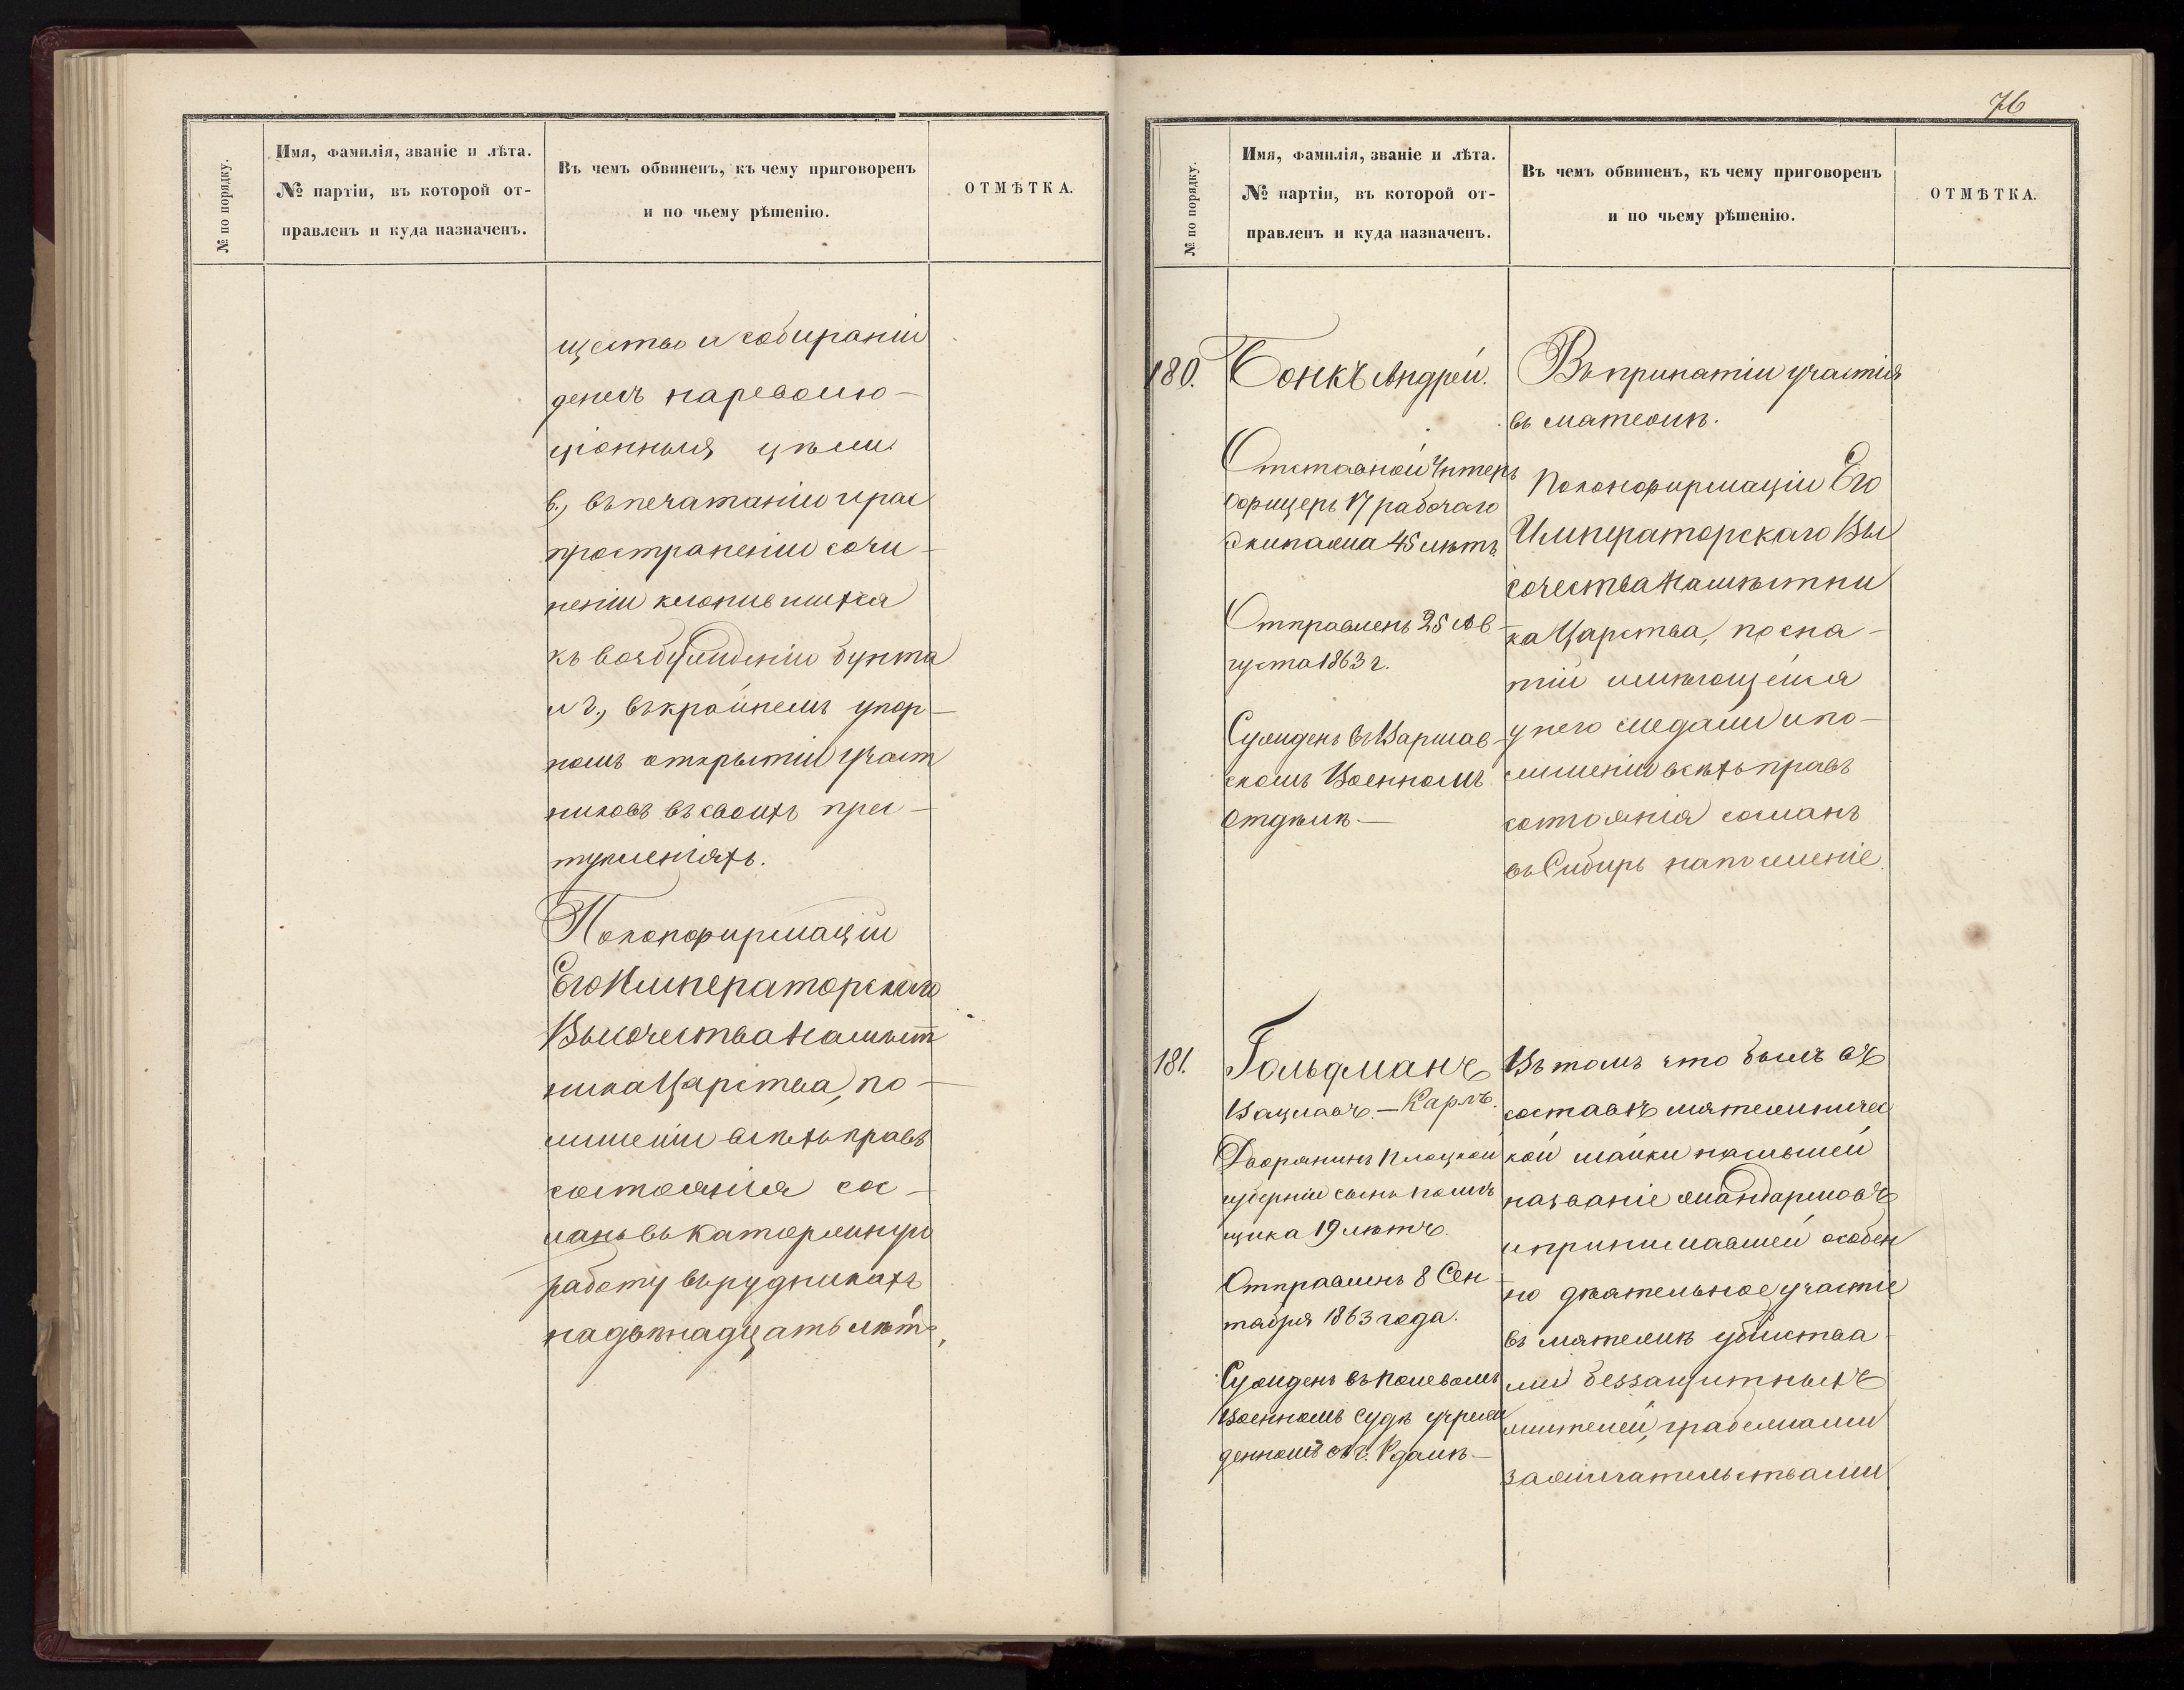 № по порядку.
Имя, фамилія, званіе и лѣта.
№ партіи, въ которой от-
правленъ и куда назначенъ.
Въ чемъ обвиненъ, къ чему приговоренъ
и по чьему рѣшенію.
ОТМѢТКА.
щество и собираніи
денегъ на револю-
ціонныя цѣли
в., въ печатаніи и рас
пространеніи сочи-
неніи клонившихся
къ возбужденію бунта
и г., въ крайнемъ упор-
номъ открытіи участ
никовъ въ своихъ прес-
тупленіяхъ.
По конфирмаціи
Его Императорскаго
Высочества Намѣст
ника Царства, по-
лишеніи всѣхъ правъ
состоянія сос-
ланъ въ каторжную
работу въ рудникахъ
на двѣнадцать лѣтъ,
76
№ по порядку.
Имя, фамилія, званіе и лѣта.
№ партіи, въ которой от-
правленъ и куда назначенъ.
Въ чемъ обвиненъ, къ чему приговоренъ
и по чьему рѣшенію.
ОТМѢТКА.
180.
Бонкъ Андрей.
Отставной Унтеръ
офицеръ 17 рабочаго
экипажа 45 лѣтъ
Отправленъ 25 Ав-
густа 1863 г.
Сужденъ въ Варшав-
скомъ Военномъ
Отдѣлѣ.—
Въ принятіи участія
въ мятежѣ.
По конфирмаціи Его
Императорскаго Вы
сочества Намѣстни
ка Царства, по сня-
тіи имѣющейся
у него медали и по-
лишеніи всѣхъ правъ
состоянія сосланъ
въ Сибирь на поселеніе.
181.
Гольдманъ
Вацлавъ.—Карлъ.
Дворянинъ Плоцкой
губерніи сынъ помѣ
щика 19 лѣтъ.
Отправленъ 8 Сен-
тября 1863 года.
Сужденъ въ полевомъ
Военномъ Судѣ учреж
денномъ въ г.
Въ томъ что былъ въ
составѣ мятежничес
кой шайки носившей
названіе жандармовъ
и принимавшей особен
но дѣятельное участіе
въ мятежѣ убійства-
ми беззащитныхъ
жителей, грабежами
зажигательствами